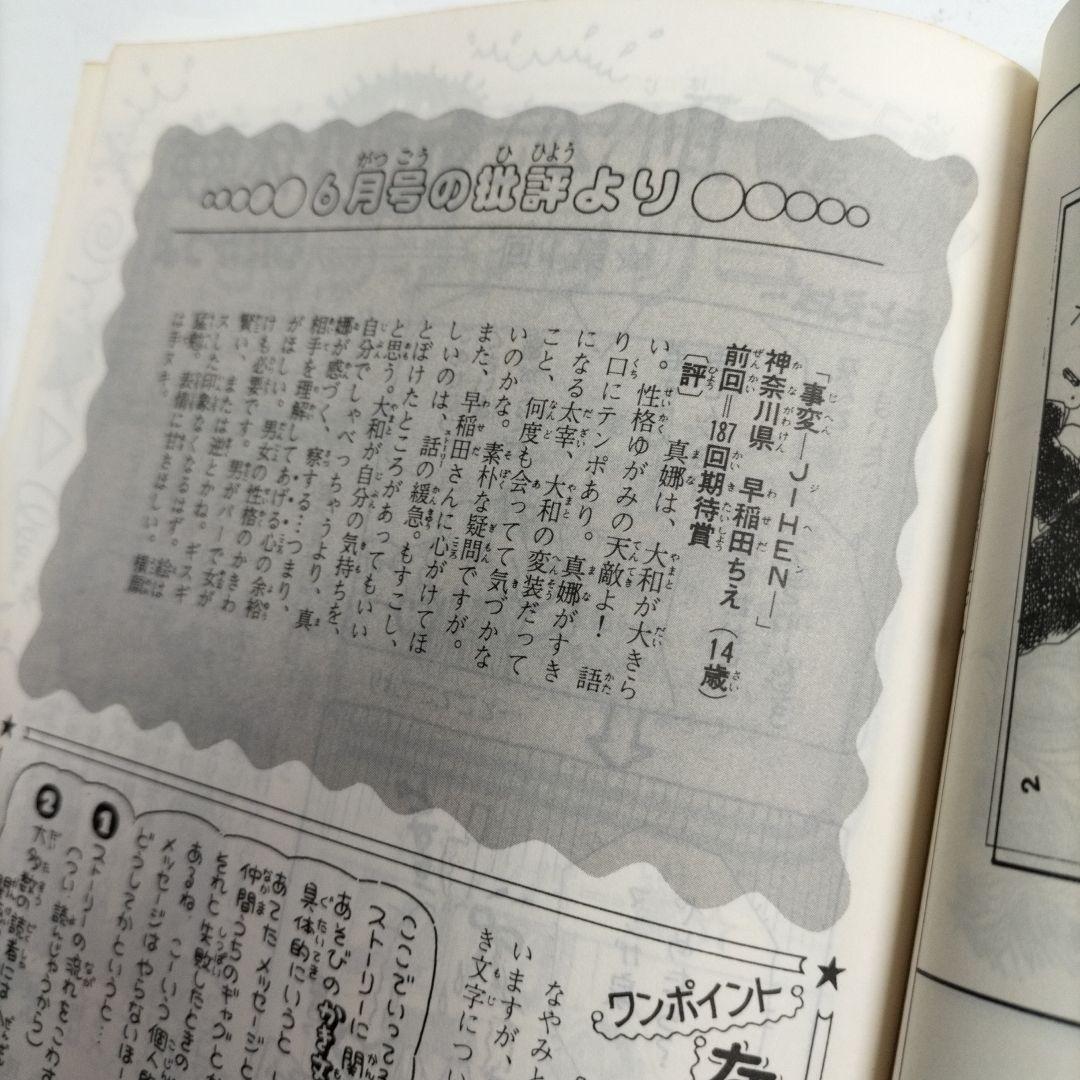 6月号の批評より
「事変―JIHEN―」
神奈川県 早稲田ちえ(14歳)
前回=187回期待賞
〔評〕 真娜は、大和が大きら
い。性格ゆがみの天敵よ! 語
り口にテンポあり。真娜がすき
になる太宰、大和の変装だって
こと、何度も会ってて気づかな
いのかな。素朴な疑問ですが。
また、早稲田さんに心がけてほ
しいのは、話の緩急。もすこし、
とぼけたところがあってもいい
と思う。大和が自分の気持ちを、
自分でしゃべっちゃうより、真
娜が感づく、察する…つまり、
相手を理解してあげる心の余裕
がほしい。男女の性格のかきわ
けも必要です。男がバーで女が
賢い、または逆とかね。ギスギ
スした印象なくなるはず。絵は
表情に甘さほしい。
は手ヌキ。
ワンポイント
なやみと
いますが、
き文字につい
ここでいってる
ストーリーに関
あそびの
具体的にいうと
あてたメッセージと
仲間うちのギャグと
それと失敗したときの
あるね こーいう個人的
メッセージはやらないほー
どうしてかというと…
❶ストーリーの流れをこわ
(つい読んじゃうから)
❷大多数の読者には
2